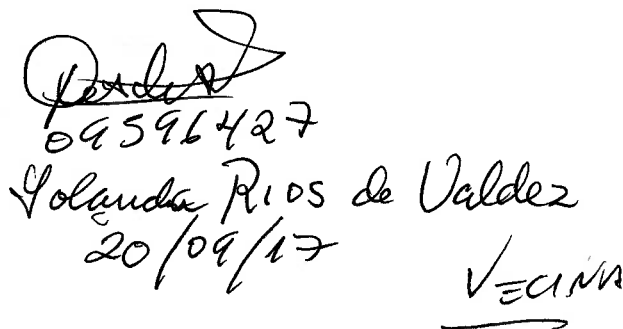 09596427
Yolanda Rios de Valdez
20/09/17
VECINA